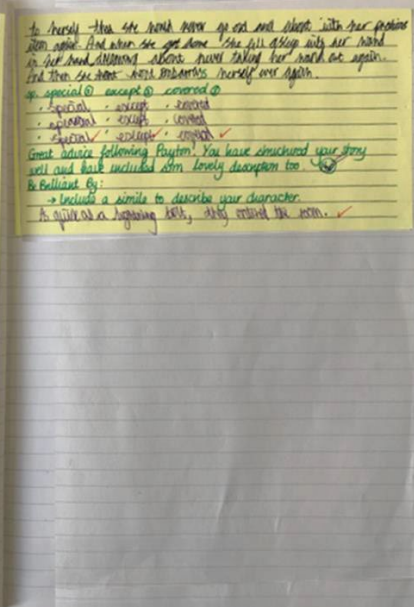 to herself that she would never go out and about with her precious
item again. And when she got home she fell asleep with her wand
in her hand dreaming about never taking her wand out again.
And then she wont embarress herself ever again.
sp. special③ except③ covered③
• special • except • covered
• special • except • covered
• special ✓ • except ✓ • covered ✓
Great advice following Payton! You have structured your story
well and have included som lovely description too.
Be Brilliant By:
→ Include a simile to describe your character.
As quick as a lightening bolt, they entered the room. ✓